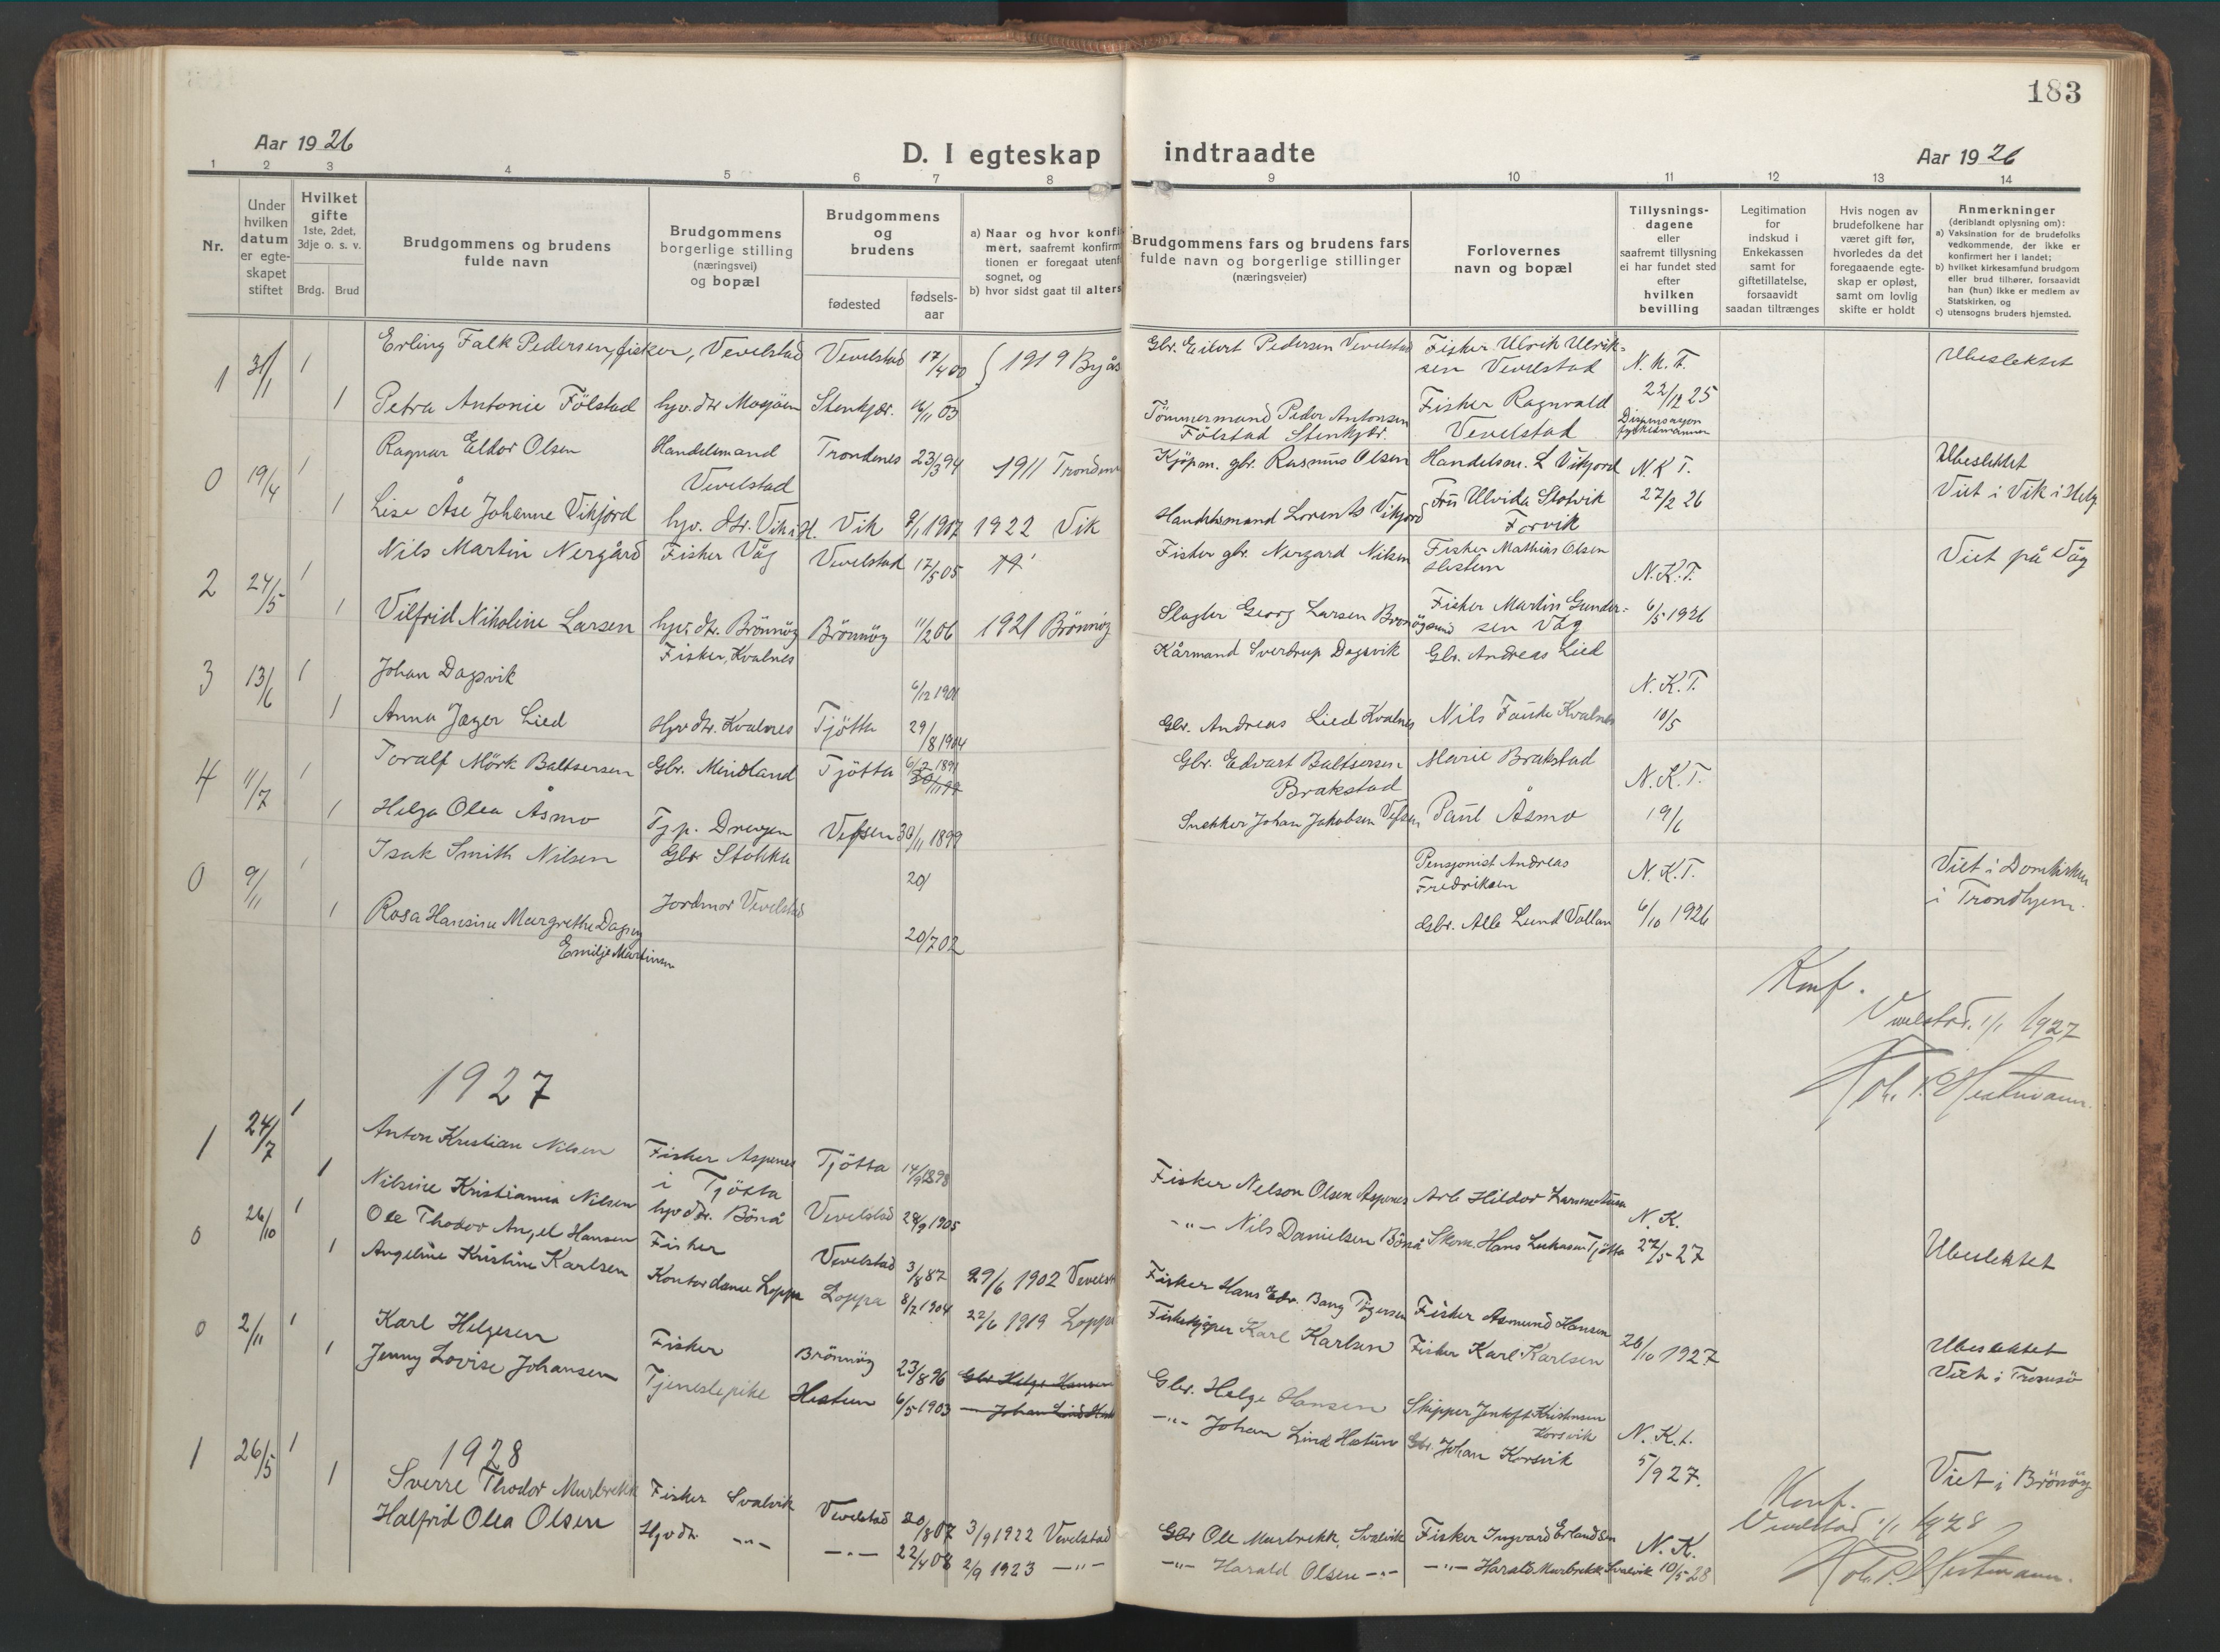 183
Aar 1926
D. I egteskap indtraadte
Aar 1926
1 2 3 4 5 6 7 8 9 10 11 12 13 14
Nr.
Under hvilken datum er egte-skapet stiftet
Hvilket gifte
1ste, 2det, 3dje o. s. v.
Brdg. Brud
Brudgommens og brudens fulde navn
Brudgommens borgerlige stilling (næringsvei) og bopæl
Brudgommens og brudens
fødested
fødsels-aar
a) Naar og hvor konfi
mert, saafremt konfirm
tionen er foregaat utenf
sognet, og
b) hvor sidst gaat til alters
Brudgommens fars og brudens fars
fulde navn og borgerlige stillinger
(næringsveier)
Forlovernes
navn og bopæl
Tillysnings-
dagene
eller
saafremt tillysning
ei har fundet sted
efter
hvilken
bevilling
Legitimation
for
indskud i
Enkekassen
samt for
giftetillatelse,
forsaavidt
saadan tiltrænges
Hvis nogen av
brudefolkene har
været gift før,
hvorledes da det
foregaaende egte-
skap er opløst,
samt om lovlig
skifte er holdt
Anmerkninger
(deriblandt oplysning om):
a) Vaksination for de brudefolks
vedkommende, der ikke er
konfirmert her i landet;
b) hvilket kirkesamfund brudgom
eller brud tilhører, forsaavidt
han (hun) ikke er medlem av
Statskirken, og
c) utensogns bruders hjemsted.
1 31/1 1 Erling Falk Pedersen, fisker, Vevelstad Vevelstad 17/4 00 1919 Byås Gbr. Eilert Pedersen Vevelstad Fisker Ulrik Ulrik-
sen Vevelstad N. K. T. Ubeslektet
1 Petra Antonie Fölstad hjv. dtr Mosjöen Stenkjær. 16/11 03 Tömmermand Peder Antonsen
Fölstad Stenkjær. Fisker Ragnvald
Vevelstad 22/12 25
0 19/4 1 Ragnar Eldor Olsen Handelsmand
Vevelstad Trondenes 23/3 94 1911 Tronden Kjöpm. gbr. Rasmus Olsen Handelsm. L Vikjord N. K T. Ubeslektet
1 Lise Åse Johanne Vikjord hjv. dtr. Vik i H. Vik 9/1 1907 1922 Vik Handelsmand Lorents Vikjord Fru Ulvida Stolvik
Forvik 27/2 26 Viet i Vik i Helg
2 24/5 1 Nils Martin Nergård Fisker Våg Vevelstad 17/5 05 Fisker gbr. Nergard Nilsen Fisker Mathias Olsen
Hestun N.K.T. Viet på Våg
1 Vilfrid Nikoline Larsen hjv. dtr. Brönnöy Brönnöy 11/2 06 1921 Brönnöy Slagter Georg Larsen Brönöysund Fisker Martin Gunder-
sen Våg 6/5 1926
3 13/6 1 Johan Dagsvik Fisker, Kvalnes 6/12 1901 Kårmand Sverdrup Dagsvik Gbr. Andreas Lied N. K.T.
1 Anna Jæger Lied Hjv dtr. Kvalnes Tjötta 29/8 1904 Gbr. Andreas Lied Kvalnes Nils Fauske Kvalnes 10/5
4 11/7 1 Toralf Mörk Baltsersen Gbr. Mindland Tjötta 6/7 1891 Gbr. Edvart Baltsersen
Brakstad Marie Brakstad N.K.T.
1 Helga Olea Åsmo Tj.p. Drevjen Vefsen 30/11 1899 Snekker Johan Jakobsen Vefsen Paul Åsmo 19/6
0 9/11 1 Isak Smith Nilsen Gbr Stokka 20/ Pensjonist Andreas
Fredriksen N.K.T. Viet i Domkirken
i Trondhjem.
1 Rosa Hansine Margrethe Dagny
Emilje Martinsen Jordmor Vevelstad 20/7 02 Gbr. Alle Lund Vollan 6/10 1926
Konf.
Vevelstad, 1/1 1927
1927
1 24/7 1 Anton Kristian Nilsen Fisker Aspenes
i Tjötta Tjötta 14/9 1898 Fisker Nelson Olsen Aspenes Arb Hildor N. K.
1 Nilsine Kristianna Nilsen hjv dtr. Bönå Vevelstad 28/9 1905 -"- Nils Danielsen Bönå Skom. Hans Lukassen Tjötta 27/5 27
0 26/10 1 Ole Thodor Angel Hansen Fisher Vevelstad 3/8 87 29/6 1902 Vevelst Fisker Hans Edv. Bang Tögersen Fisker Asmund Hansen Ubeslektet
1 Angeline Kristine Karlsen Kontordame Loppa Loppa 8/7 1904 22/6 1919 Lopp Fiskekjöper Karl Karlsen Fisker Karl Karlsen 26/10 1927
0 2/11 1 Karl Helgesen Fisker Brönnöy 23/8 96 Gbr Helge Hansen Gbr. Helge Hansen Skipper Jentoft Kristensen
Korsvik N. K.t. Ubeslektet
Viet i Tromsö
1 Jenny Lovise Johansen Tjenestepike Hestun 6/5 1903 -"- Johan Lind Hestun Gbr. Johan Korsvik 5/9 27.
1928
1 26/5 1 Sverre Thodor Murbrekk Fisker Svalvik Vevelstad 20/8 07 3/9 1922 Vevelstad Gbr Ole Murbrekk, Svalvik Fisker Ingvard Erlandsen N. K. Viet i Brönöy
1 Halfrid Olea Olsen Hjvdtr -"- -"- 22/4 08 2/9 1923 -"- -"- Harald Olsen -"- -"- Harald Murbrekk Svalvik 10/5 28
Konf.
Vevelstad 1/1 1928